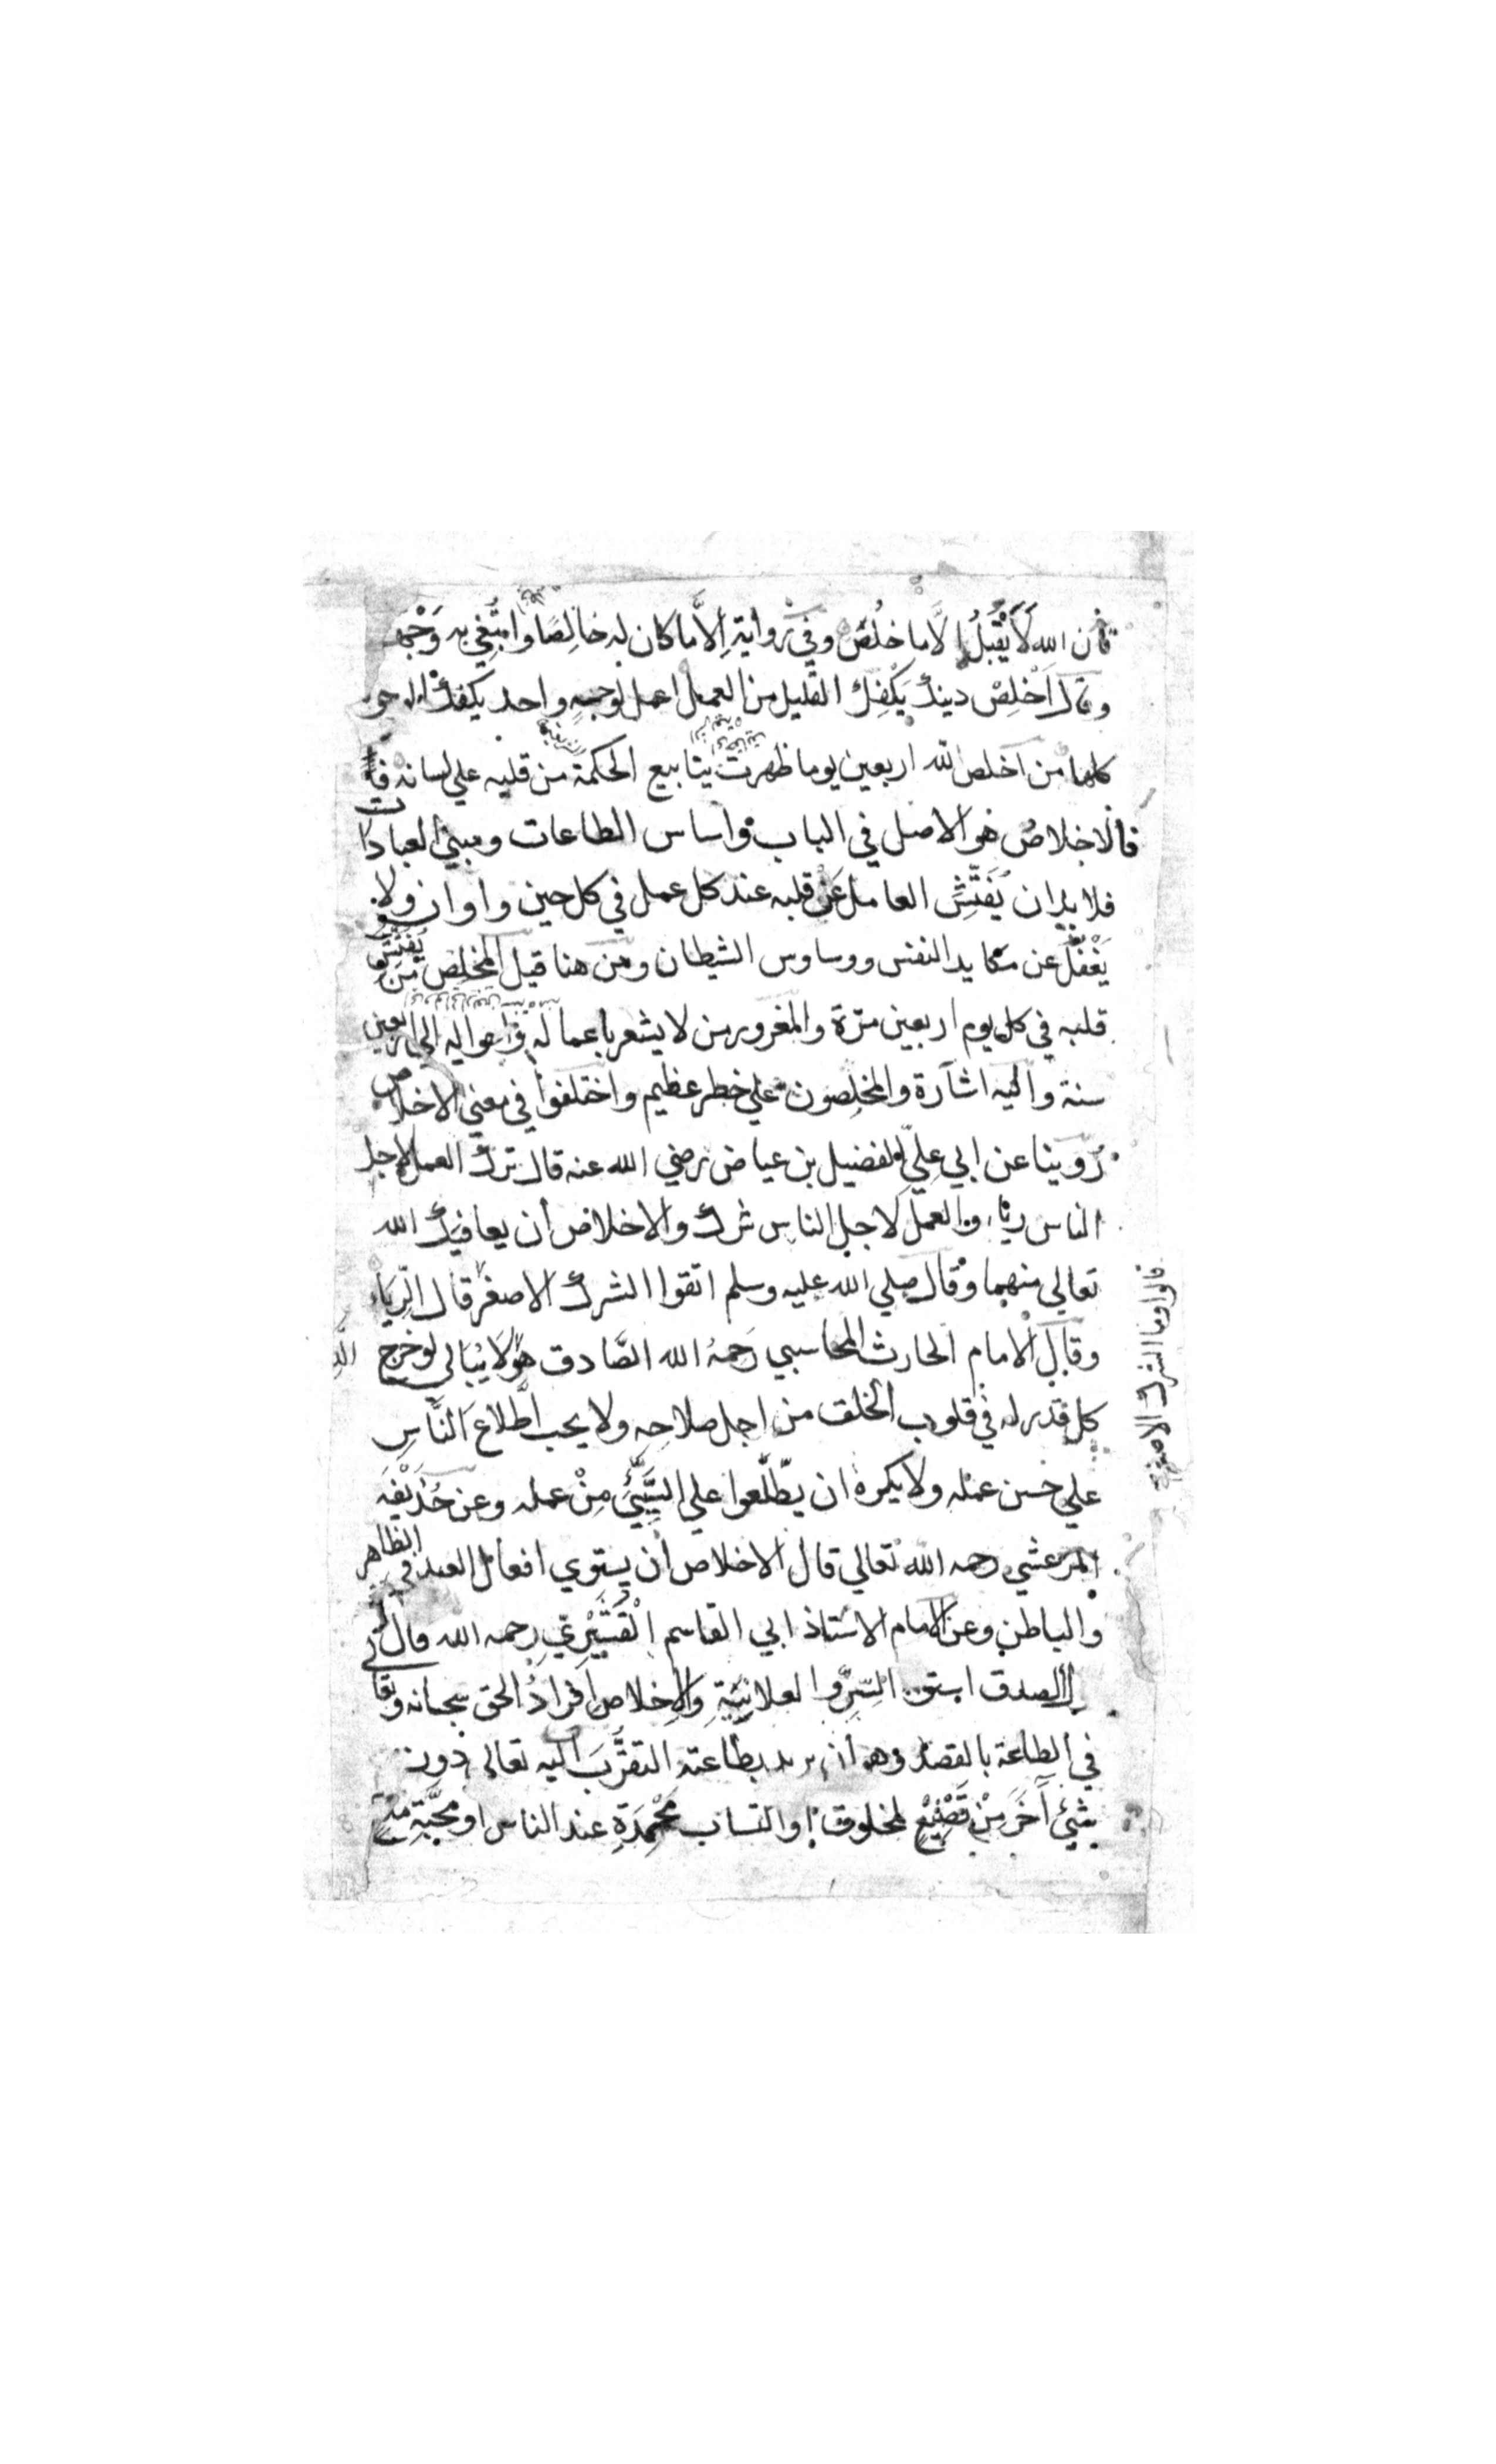 فان الله لَا يَقْبَلُ الَّا ما خلُصَ وفي رواية إلَّا ما كان له خالِصًا وابتُغِي به وَجْهه
وقال اَخْلِصْ دينك يَكْفِكَ القليل من العمل اعمل لوجهٍ واحد يكفك الوجوه
كلها من اخلص لله اربعين يوما ظهرت ينابيع الحكمة من قلبه علي لسانه
فالاخلاصُ هو الاصل في الباب واساس الطاعات ومبني العبادات
فلا بد ان يُفَتِّشَ العامل عَن قلبه عند كل عمل في كل حين واوان ولا
يَغْفُلَ عن مكايد النفس ووساوس الشيطان ومن هنا قيل المخلِص من يُفَتِّش
قلبه في كل يوم اربعين مرّة والمغرور من لا يشعر باعماله واحواله الي اربعين
سنة واليه اشارة والمخلِصون علي خطر عظيم واختلفوا في معني الاخلاص
رُوينا عن ابي عليّ الفضيل بن عياض رضي الله عنه قال ترك العمل لاجل
الناس رياء والعمل لاجل الناس شرك والاخلاص أن يعافيك الله
تعالي منهما وقال صلي الله عليه وسلم اتقوا الشرك الاصغر قال الرِّيَاء
قالوا وما الشرك الاصغر
وقال الامام الحارث المحاسبي رَحمهُ الله الصَّادق هو لَا يُبَالي لو خرج
كل قدر له في قلوب الخلق من اجل صلاحِه ولا يحب اطّلاعَ النَّاسِ
علي حسن عمله ولا يكره ان يطّلعوا علي السَّيِّئِ مِنْ عمله وعن حُذَيْفَة
المرعشي رحمه الله تعالي قال الاخلاص أن يستوي افعال العبد في الظاهر
والباطن وعن الامام الاستاذ ابي القاسم الْقُشَيْرِيِّ رحمه الله قال
الصدق استوا السِّرِّ والعلانِيَّةِ والاخلاص افرادُ الحق سبحانه وتعالي
في الطاعة بالقصد وهو أن يريد بطاعته التقرُّبَ اليه تعالي دون
شيئ آخَرَ مِنْ تَصَنُّعٍ لمخلوق او اكتساب مَحْمَدَةٍ عند الناس او محبَّةِ مدحٍ